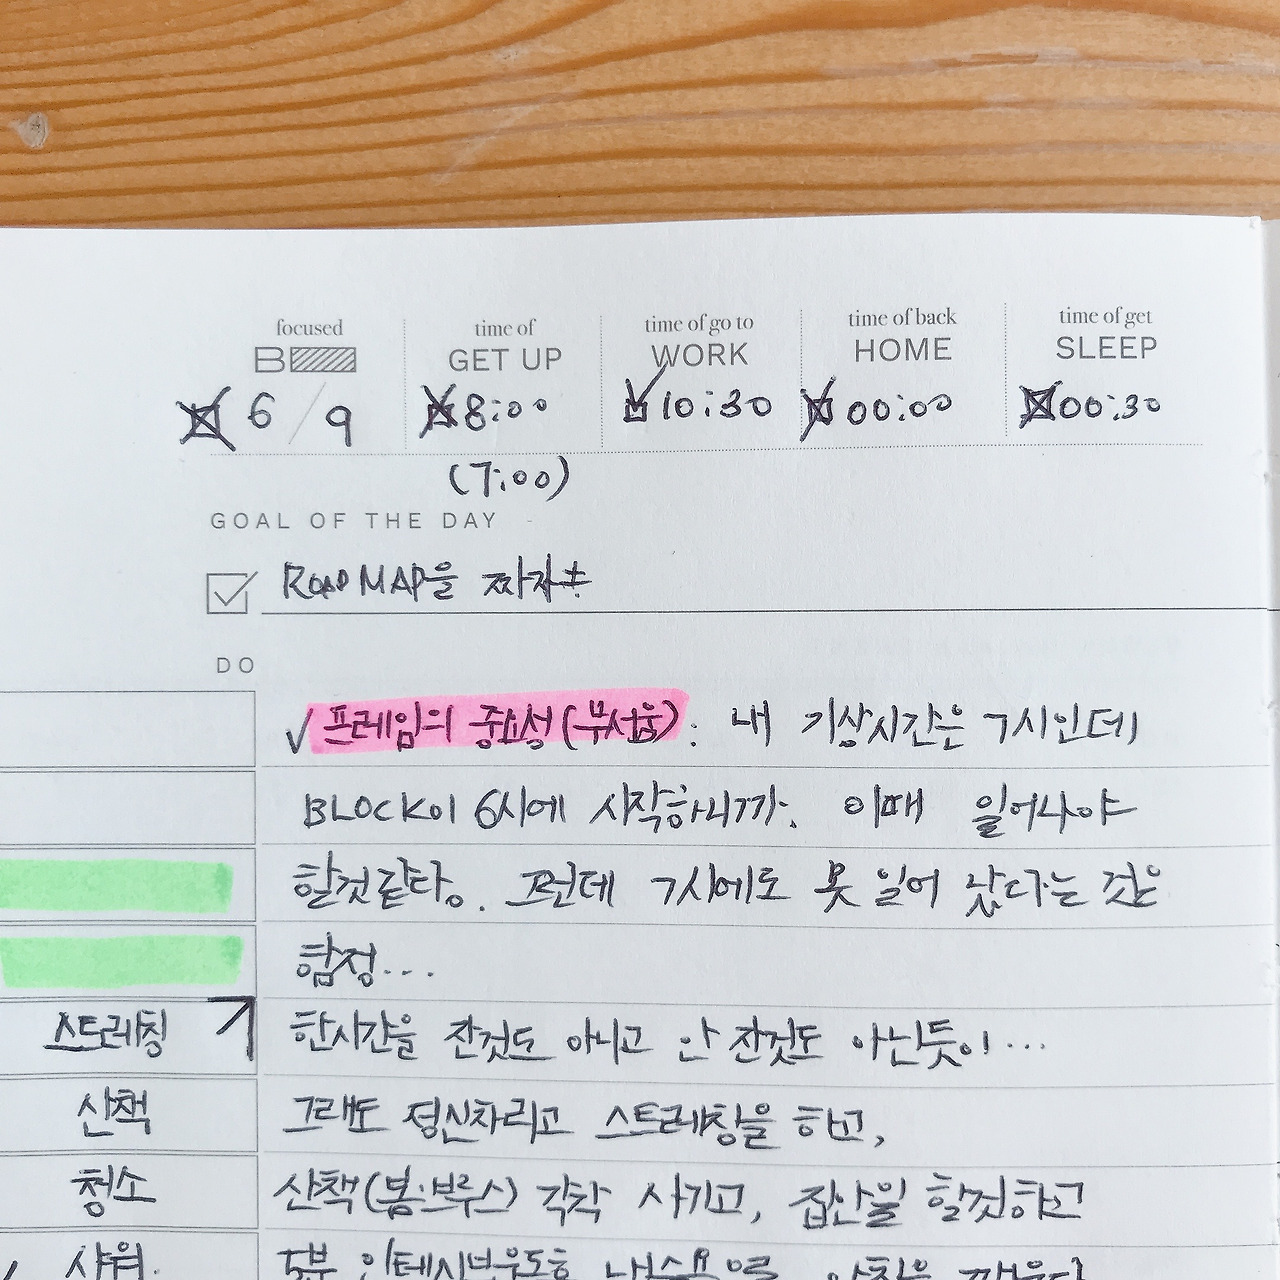 focused
B
6/9
time of
GET UP
8:00
(7:00)
time of go to
WORK
10:30
time of back
HOME
00:00
time of get
SLEEP
00:30
GOAL OF THE DAY
ROAD MAP을 짜자
DO
√ 프레임의 중요성(무서움): 내 기상시간은 7시인데
BLOCK이 6시에 시작하니까. 이때 일어나야
할것 같다. 그런데 7시에도 못 일어 났다는 것은
함정...
스트레칭
한시간을 잔것도 아니고 안 잔것도 아닌듯이...
산책
그래도 정신차리고 스트레칭을 하고,
청소
산책(봄:브루스) 각각 시키고, 집안일 할것하고
샤워
5분